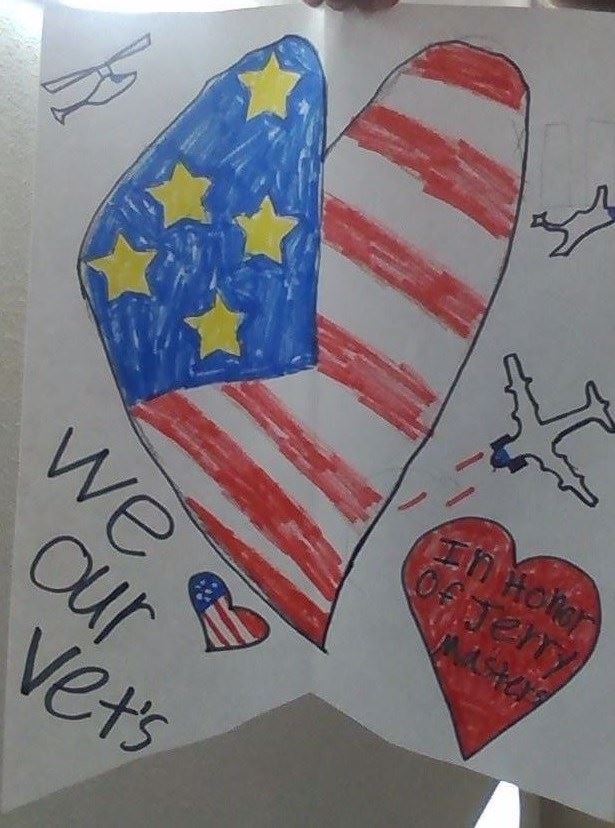 we
our
vet's
In Honor
Of Jerry
Masters